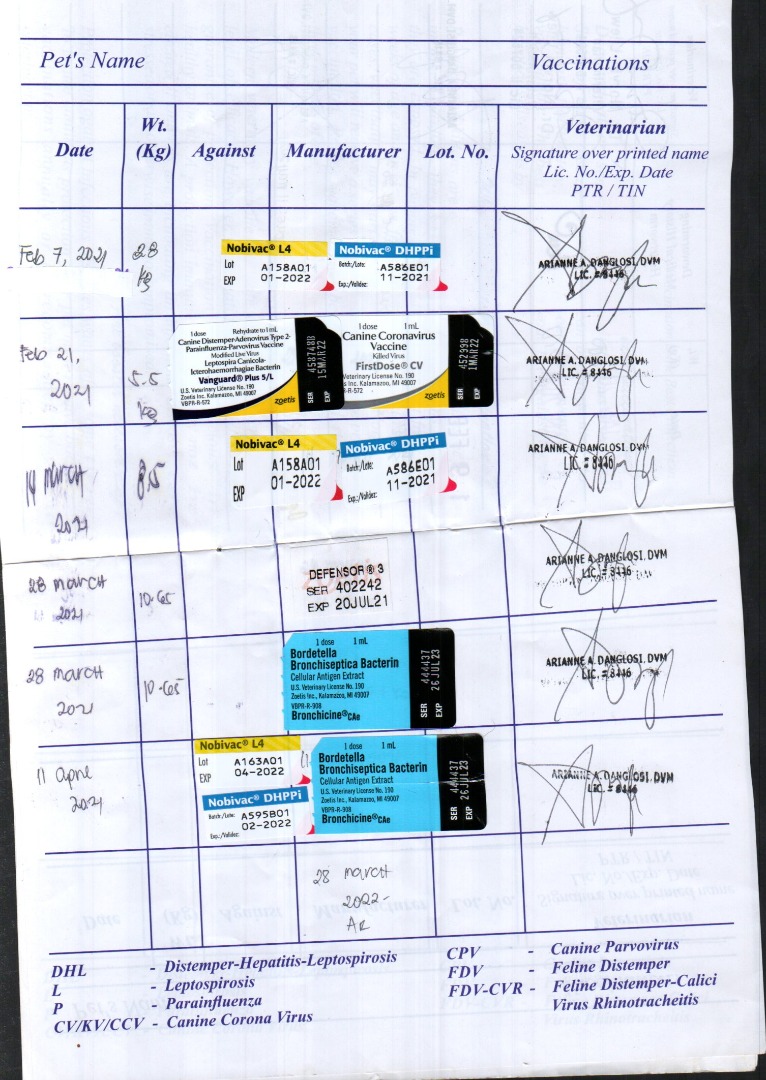 Pet's Name Vaccinations
Date Wt. (Kg) Against Manufacturer Lot. No. Veterinarian
Signature over printed name
Lic. No./Exp. Date
PTR / TIN
Feb 7, 2021
2.8
kg
Nobivac® L4
Lot A158A01
EXP 01-2022
Nobivac® DHPPi
Batch/Lote: A586E01
11-2021
Exp./Validez:
ARIANNE A. DANGLOSI, DVM
LIC. # 8446
Feb 21,
2021
5.5
kg
1 dose Rehydrate to 1 mL
Canine Distemper-Adenovirus Type 2-
Parainfluenza-Parvovirus Vaccine
Modified Live Virus
Leptospira Canicola-
Icterohaemorrhagiae Bacterin
Vanguard® Plus 5/L
U.S. Veterinary License No. 190
Zoetis Inc. Kalamazoo, MI 49007
VBPR-R-572
zoetis
SER 458748B
EXP 15MAR22
1 dose 1mL
Canine Coronavirus
Vaccine
Killed Virus
FirstDose® CV
Veterinary License No. 190
s Inc. Kalamazoo, MI 49007
-R-572
zoetis
SER
EXP 1MAR22
ARIANNE A. DANGLOSI, DVM
LIC. # 8446
14 march
2021
8.5
Nobivac® L4
Lot A158A01
EXP 01-2022
Nobivac® DHPPi
Batch/Lote: A586E01
11-2021
Exp./Validez:
ARIANNE A. DANGLOSI, DVM
LIC. # 8446
28 march
2021
10.65
DEFENSOR ® 3
SER 402242
EXP 20JUL21
ARIANNE A. DANGLOSI, DVM
LIC. # 8446
28 march
2021
10.65
1 dose 1 mL
Bordetella
Bronchiseptica Bacterin
Cellular Antigen Extract
U.S. Veterinary License No. 190
Zoetis Inc., Kalamazoo, MI 49007
VBPR-R-908
Bronchicine®CAe
SER 444437
EXP 26JUL23
ARIANNE A. DANGLOSI, DVM
LIC. # 8446
11 
2021
Nobivac® L4
Lot A163A01
EXP 04-2022
Nobivac® DHPPi
Batch/Lote: A595B01
02-2022
Exp./Validez:
1 dose 1 mL
Bordetella
Bronchiseptica Bacterin
Cellular Antigen Extract
U.S. Veterinary License No. 190
Zoetis Inc., Kalamazoo, MI 49007
VBPR-R-908
Bronchicine®CAe
SER 444437
EXP 26JUL23
ARIANNE A. DANGLOSI, DVM
LIC. # 8446
28 march
2022-
AR
DHL - Distemper-Hepatitis-Leptospirosis
L - Leptospirosis
P - Parainfluenza
CV/KV/CCV - Canine Corona Virus
CPV - Canine Parvovirus
FDV - Feline Distemper
FDV-CVR - Feline Distemper-Calici
Virus Rhinotracheitis